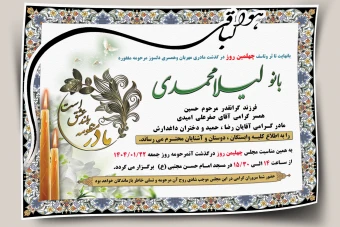 هوالباقی
بانهایت تاثر و تاسف چهلمین روز درگذشت مادری مهربان وهمسری دلسوز مرحومه مغفوره
بانو لیلا محمدی
فرزند گرانقدر مرحوم حسین
همسر گرامی آقای صفرعلی امیدی
مادر گرامی آقایان رضا ، حمید و دختران داغدارش
را به اطلاع کلیه وابستگان ، دوستان و آشنایان محترم می رساند.
به همین مناسبت مجلس چهلمین روز درگذشت آنمرحومه روز جمعه ۱۴۰۳/۰۱/۲۲
از ساعت ۱۴ الی ۱۵/۳۰ در مسجد امام حسن مجتبی (ع) برگزار می گردد.
حضور شما سروران گرامی در این مجلس موجب شادی روح آن مرحومه و تسلی خاطر بازماندگان خواهد بود
مادر